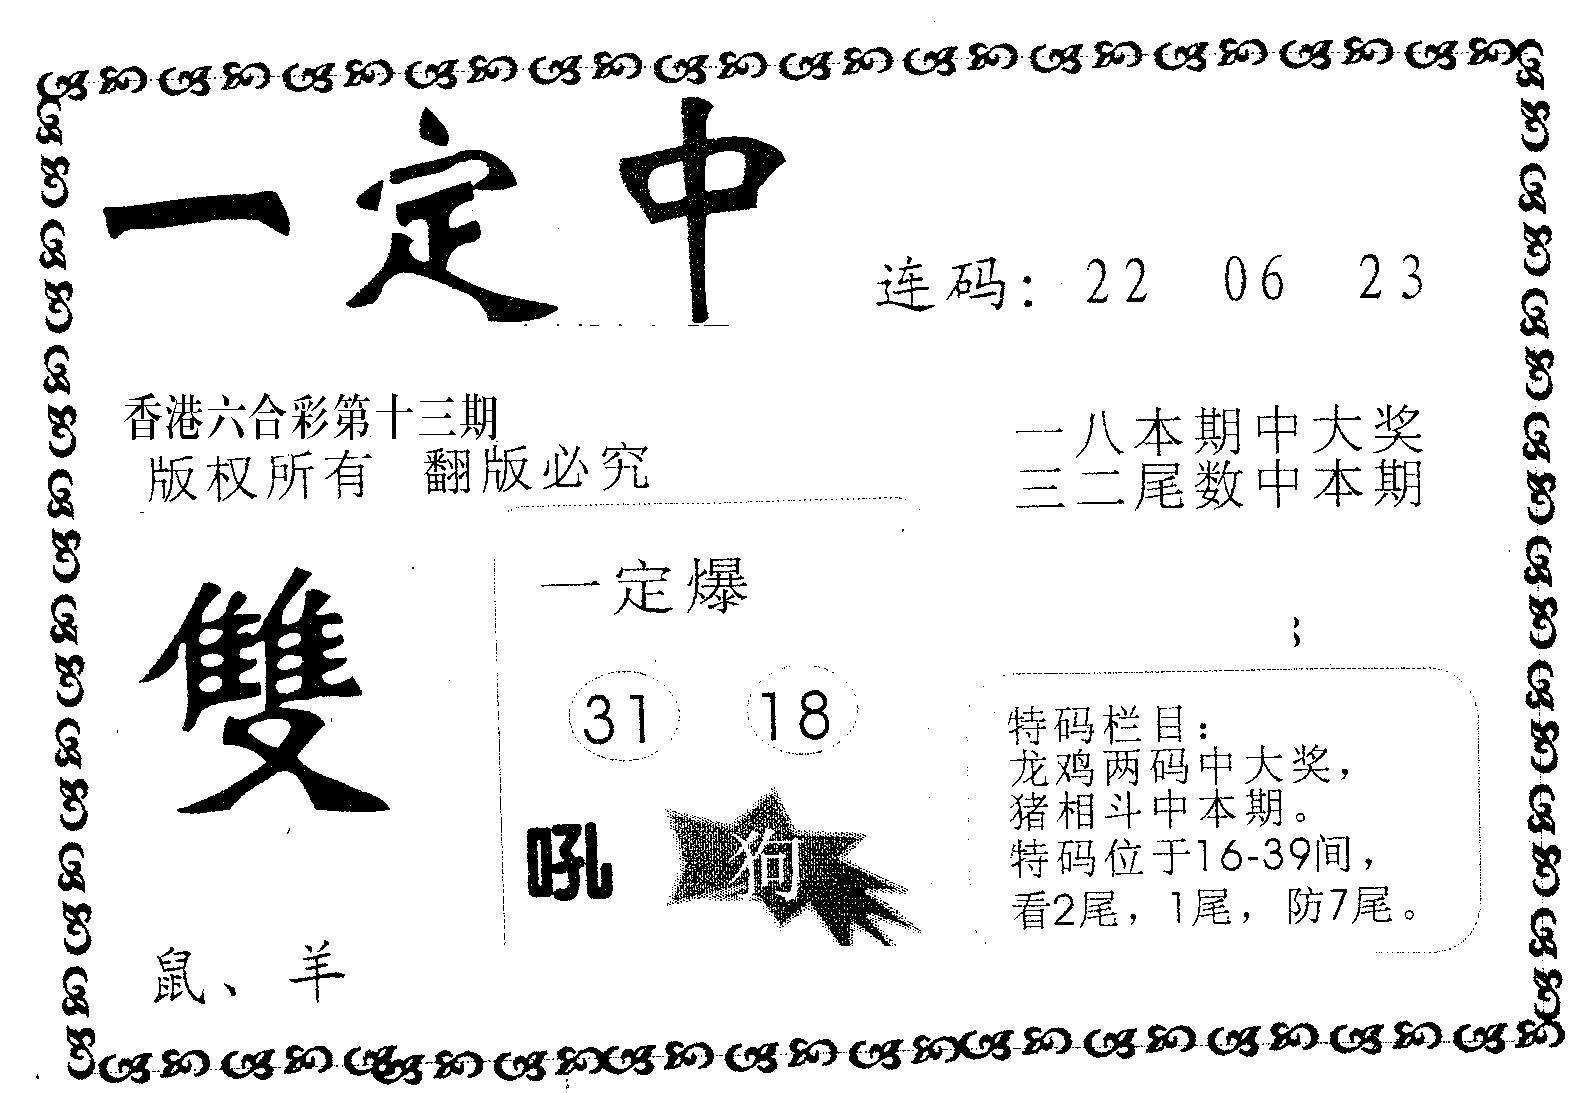 一定中
连码：22 06 23
香港六合彩第十三期
版权所有 翻版必究
一八本期中大奖
三二尾数中本期
雙
鼠、羊
一定爆
31 18
吼 狗
特码栏目：
龙鸡两码中大奖，
猪相斗中本期。
特码位于16-39间，
看2尾，1尾，防7尾。